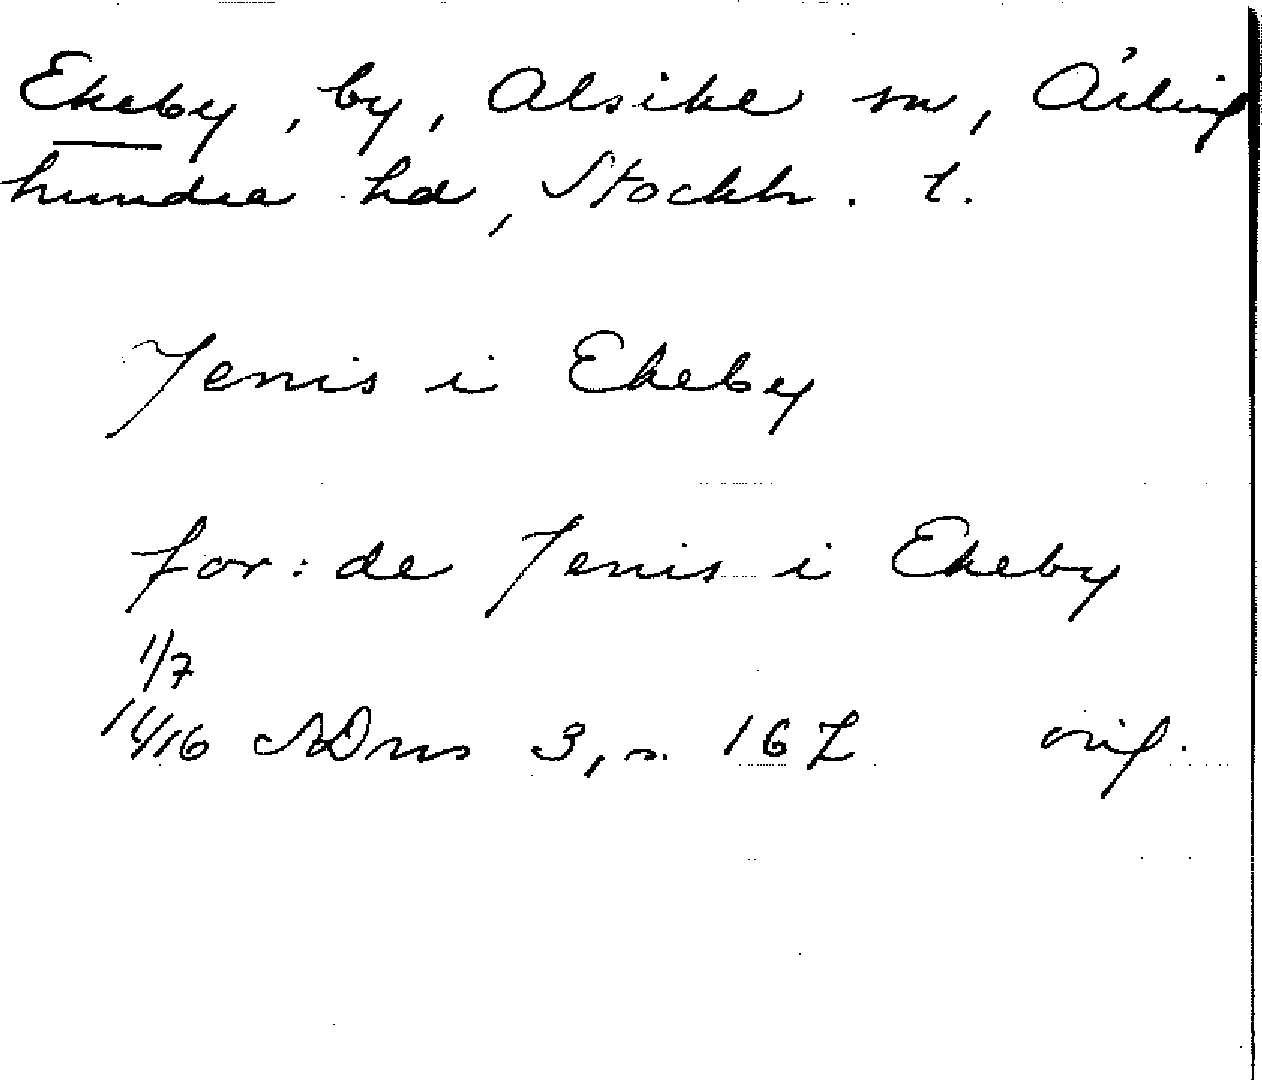 Ekeby, by, Alsike sn, Ärling
hundra hd, Stockh. l.
Jenis i Ekeby
for: de Jenis i Ekeby
1/7
1416 SDns 3, s. 167 orig.